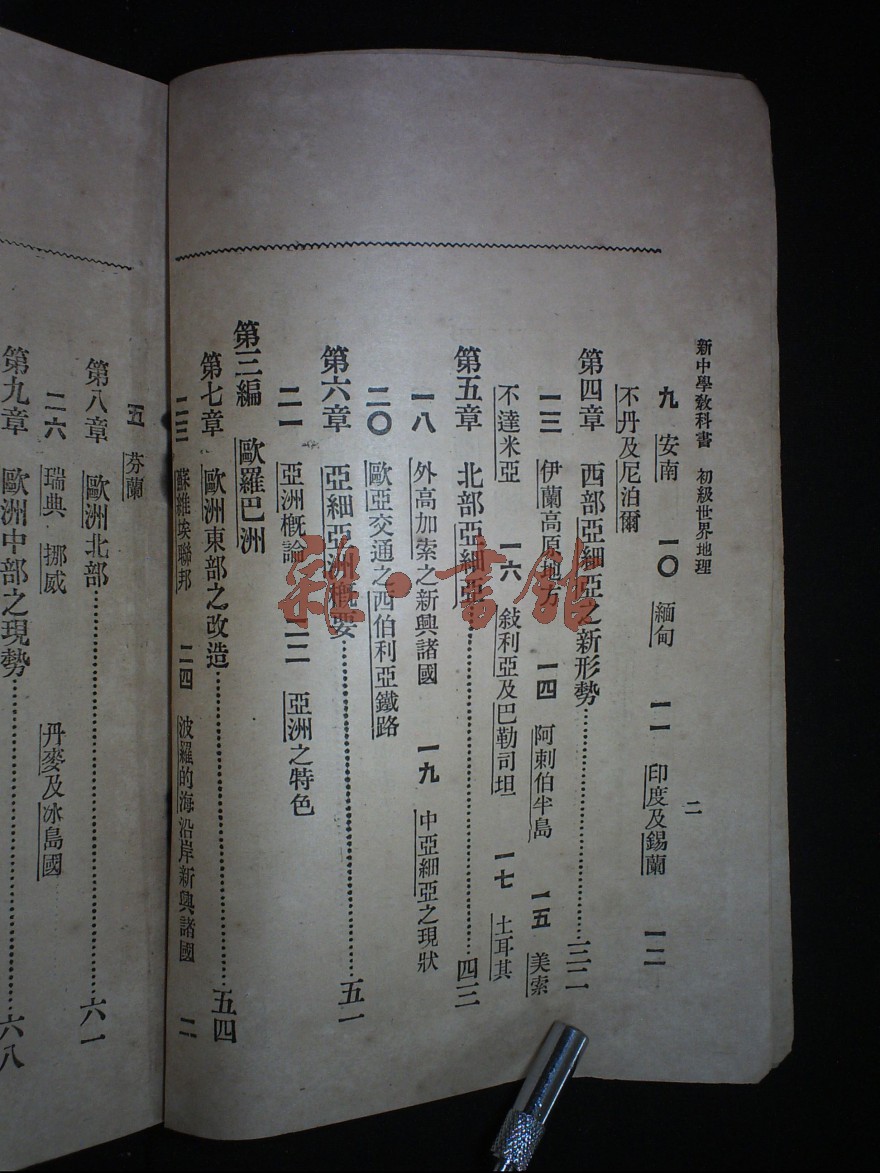 新中學教科書　初級世界地理
二
九　安南　一〇　緬甸　一一　印度及錫蘭　一二
不丹及尼泊爾
第四章　西部亞細亞之新形勢…………三二
一三　伊蘭高原地方　一四　阿剌伯半島　一五　美索
不達米亞　一六　敍利亞及巴勒司坦　一七　土耳其
第五章　北部亞細亞…………四三
一八　外高加索之新興諸國　一九　中亞細亞之現狀
二〇　歐亞交通之西伯利亞鐵路
第六章　亞細亞洲概要…………五一
二一　亞洲概論　二二　亞洲之特色
第三編　歐羅巴洲
第七章　歐洲東部之改造…………五四
二三　蘇維埃聯邦　二四　波羅的海沿岸新興諸國　二
五　芬蘭
第八章　歐洲北部…………六一
二六　瑞典　挪威　丹麥及冰島國
第九章　歐洲中部之現勢…………六八
雜·書館